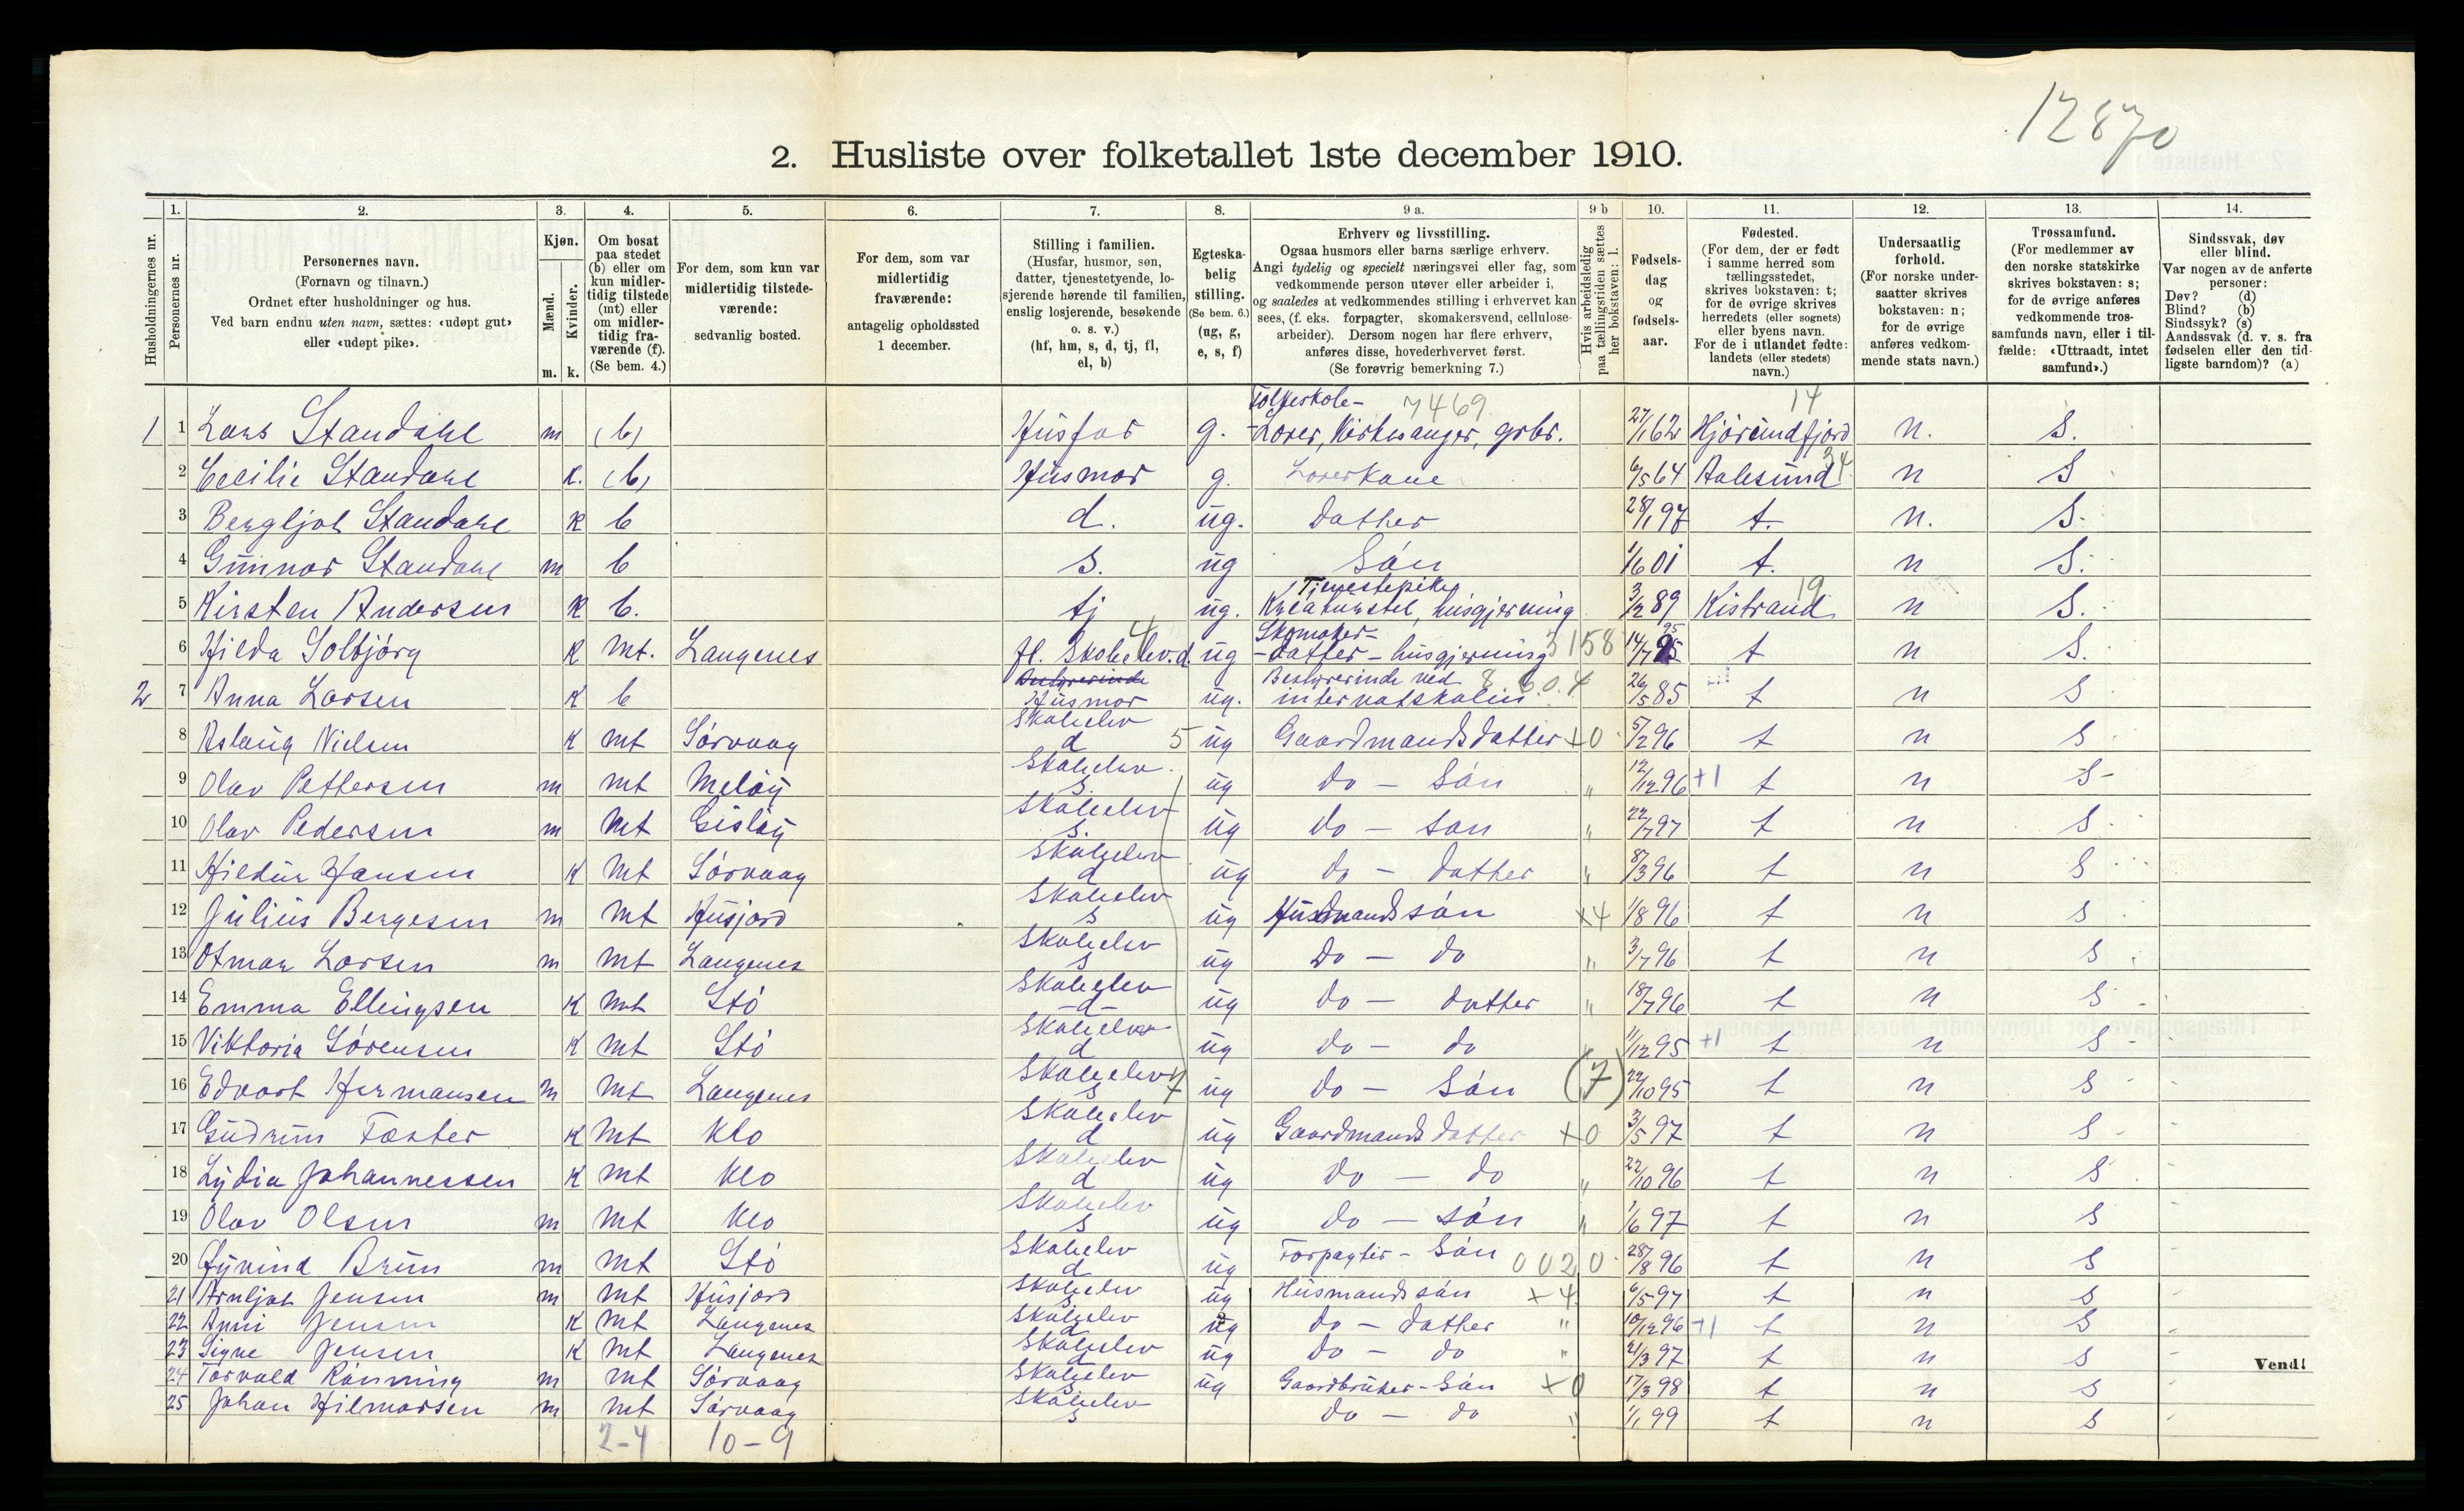 12870
2. Husliste over folketallet 1ste december 1910.
1. 2. 3. 4. 5. 6. 7. 8. 9 a. 9 b 10. 11. 12. 13. 14.
Husholdningernes nr.
Personernes nr.
Personernes navn.
(Fornavn og tilnavn.)
Ordnet efter husholdninger og hus.
Ved barn endnu uten navn, sættes: «udøpt gut»
eller «udøpt pike».
Kjøn.
Mænd.
Kvinder.
m. k.
Om bosat
paa stedet
(b) eller om
kun midler-
tidig tilstede
(mt) eller
om midler-
tidig fra-
værende (f).
(Se bem. 4.)
For dem, som kun var
midlertidig tilstede-
værende:
sedvanlig bosted.
For dem, som var
midlertidig
fraværende:
antagelig opholdssted
1 december.
Stilling i familien.
(Husfar, husmor, søn,
datter, tjenestetyende, lo-
sjerende hørende til familien,
enslig losjerende, besøkende
o. s. v.)
(hf, hm, s, d, tj, fl,
el, b)
Egteska-
belig
stilling.
(Se bem. 6.)
(ug, g,
e, s, f)
Erhverv og livsstilling.
Ogsaa husmors eller barns særlige erhverv.
Angi tydelig og specielt næringsvei eller fag, som
vedkommende person utøver eller arbeider i,
og saaledes at vedkommendes stilling i erhvervet kan
sees, (f. eks. forpagter, skomakersvend, cellulose-
arbeider). Dersom nogen har flere erhverv,
anføres disse, hovederhvervet først.
(Se forøvrig bemerkning 7.)
Hvis arbeidsledig
paa tællingstiden sættes
her bokstaven: l.
Fødsels-
dag
og
fødsels-
aar.
Fødested.
(For dem, der er født
i samme herred som
tællingsstedet,
skrives bokstaven: t;
for de øvrige skrives
herredets (eller sognets)
eller byens navn.
For de i utlandet fødte:
landets (eller stedets)
navn.)
Undersaatlig
forhold.
(For norske under-
saatter skrives
bokstaven: n;
for de øvrige
anføres vedkom-
mende stats navn.)
Trossamfund.
(For medlemmer av
den norske statskirke
skrives bokstaven: s;
for de øvrige anføres
vedkommende tros-
samfunds navn, eller i til-
fælde: «Uttraadt, intet
samfund».)
Sindssvak, døv
eller blind.
Var nogen av de anførte
personer:
Døv? (d)
Blind? (b)
Sindssyk? (s)
Aandssvak (d. v. s. fra
fødselen eller den tid-
ligste barndom)? (a)
Folkeskole- 7469 14
1 1 Lars Standahl m (b) Husfar g. -Lærer, Kirkesanger, grbr. 27/1 62 Hjørundfjord n. S.
2 Cecilie Standahl K. (b) Husmor g. Lærerkone 6/5 64 Aalesund 34 n S
3 Bergljot Standahl K b d. ug. datter 28/1 97 t. n. S.
4 Gunnar Standahl m b s. ug Søn 1/6 01 t. n S.
Tjenestepike 19
5 Kirsten Andersen K b. tj ug. Kreaturstel, husgjerning 3/2 89 Kistrand n S.
Skomaker- 95
6 Hilda Solbjørg K mt. Langenes fl. Skoleelev. d 4 ug -datter - husgjerning 3158 14/7 t n S.
Bestyrerinde Bestyrerinde ved 8.0.4
2 7 Anna Larsen K b Husmor ug. internatskolen 26/5 85 t n S
Skoleelev
8 Aslaug Nielsen K mt Sørvaag d 5 ug Gaardmandsdatter +0 5/2 96 t n S
Skoleelev
9 Olav Pettersen m mt Meløy s. ug do - Søn " 12/12 96 +1 t n S
Skoleelev
10 Olav Pedersen m mt Gisløy s. ug do - søn " 22/7 97 t n S
Skoleelev
11 Hildur Hansen K mt Sørvaag d ug do - datter " 8/3 96 t n S
Skoleelev
12 Julius Bergesen m mt Husjord s ug Husmandssøn +4 1/8 96 t n S
Skoleelev
13 Otmar Larsen m mt Langenes s ug do - do " 3/7 96 t n S
Skoleelev
14 Emma Ellingsen K mt Stø d ug do - datter " 18/7 96 t n S
Skoleelev
15 Viktoria Sørensen K mt Stø d ug do - do " 1/12 95 +1 t n S
Skoleelev
16 Edvart Hermansen m mt Langenes s 7 ug do - Søn (7) 22/10 95 t n S
Skoleelev
17 Gudrun Fester K mt Klo d ug Gaardmandsdatter +0 3/5 97 t n S
Skoleelev
18 Lydia Johannessen K mt Klo d ug do - do " 22/10 96 t n S
Skoleelev
19 Olav Olsen m mt Klo s ug do - søn " 1/6 97 t n S
Skoleelev
20 Øyvind Brun m mt Stø d ug Forpagter - Søn 0020 28/8 96 t n S
Skoleelev
21 Arnljot Jensen m mt Husjord s ug Husmandssøn +4 6/5 97 t n S
Skoleelev
22 Anni Jensen K mt Langenes d ug do - datter " 10/12 96 +1 t n S
Skoleelev
23 Signe Jensen K mt Langenes d ug do - do " 21/3 97 t n S Vend!
Skoleelev
24 Torvald Rønning m mt Sørvaag s ug Gaardbruker-Søn +0 17/3 98 t n S
Skoleelev
25 Johan Hilmarsen m mt Sørvaag s do - do " 1/1 99 t n S
2-4 10-9